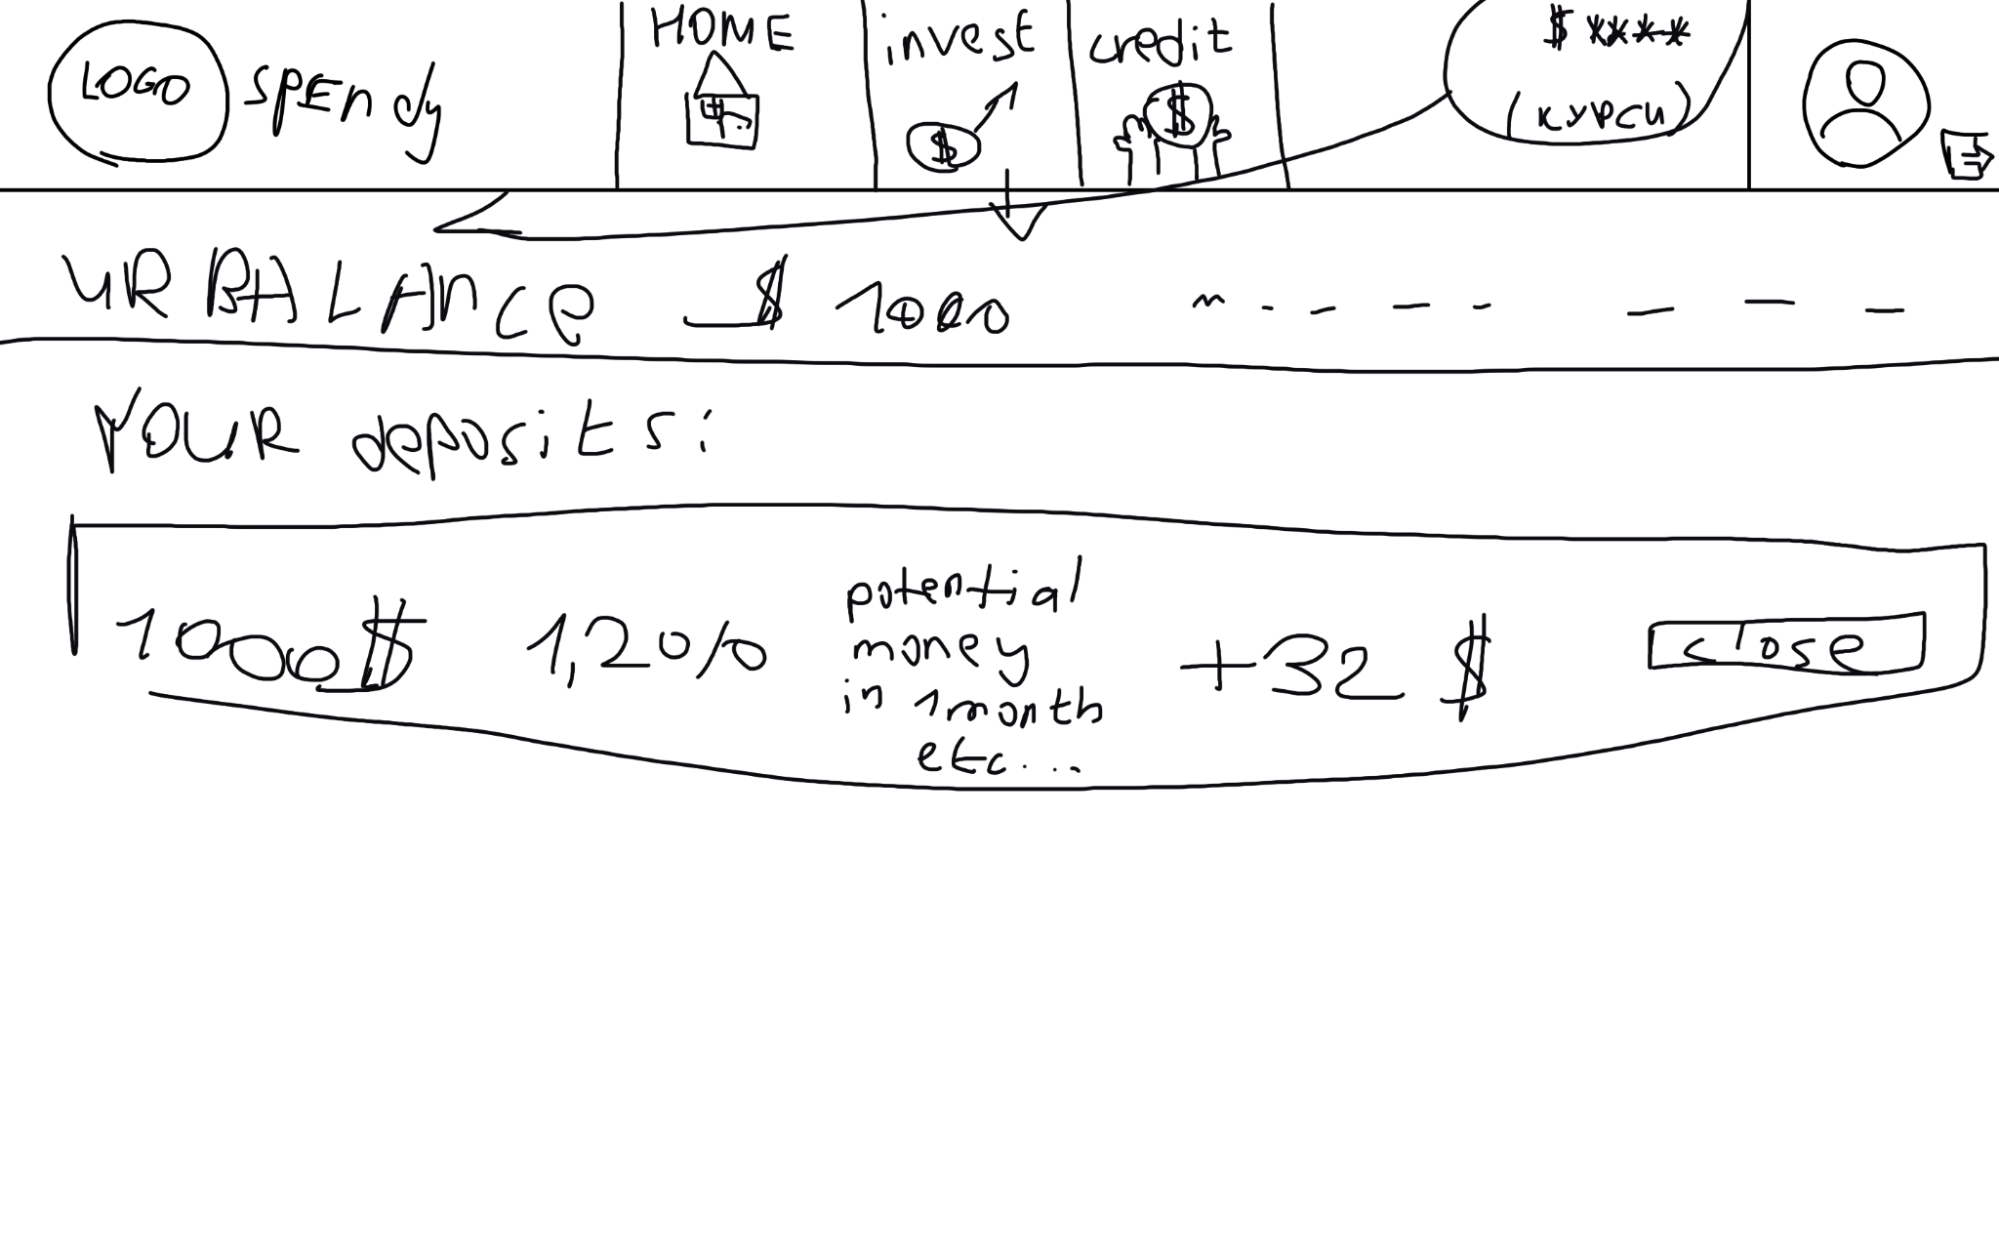 LOGO SPEndy
HOME
invest
credit
$ ****
(курси)
$
$
UR BALAnce $ 1000
YOUR deposits:
1000$ 1,20%
potential
money
in 1 month
etc...
+32 $
close